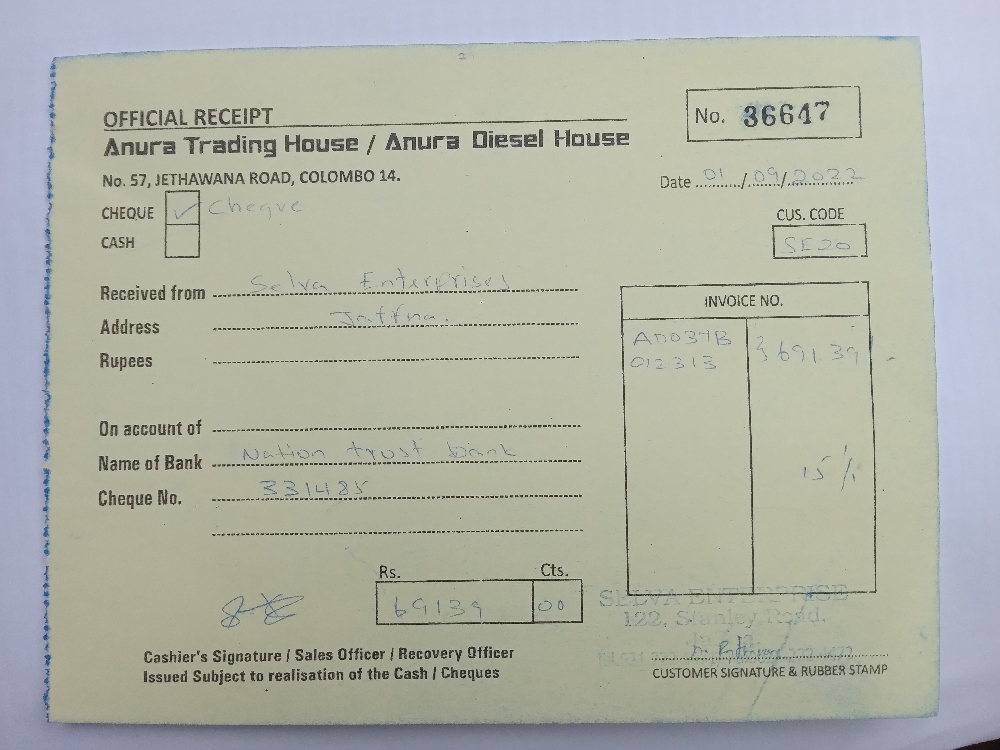 OFFICIAL RECEIPT
No. 36647
Anura Trading House / Anura Diesel House
No. 57, JETHAWANA ROAD, COLOMBO 14.
Date 01/09/2022
CHEQUE ✓ Cheque
CASH
CUS. CODE
SE20
Received from Selva Enterprises
Address Jaffna.
Rupees
INVOICE NO.
AD037B
012313
} 69139/-
On account of
Name of Bank Nation trust bank
Cheque No. 331485
15 %
Rs. Cts.
69139 00
SELVA ENTERPRISE
122, Stanley Road,
Cashier's Signature / Sales Officer / Recovery Officer
Issued Subject to realisation of the Cash / Cheques
CUSTOMER SIGNATURE & RUBBER STAMP